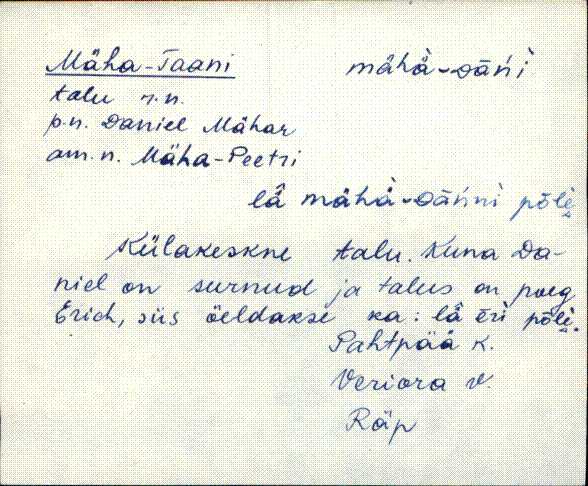 Mäha-Taani mähà-ᴅāńi
talu r.n.
p.n. Daniel Mähar
am.n. Mäha-Peetri
lǟ mähà-ᴅāńni põlè
Külakeskne talu. Kuna Da-
niel on surnud ja talus on poeg
Erich, siis öeldakse ka: lǟ ēri põlè.
Pahtpää k.
Veriora v.
Räp